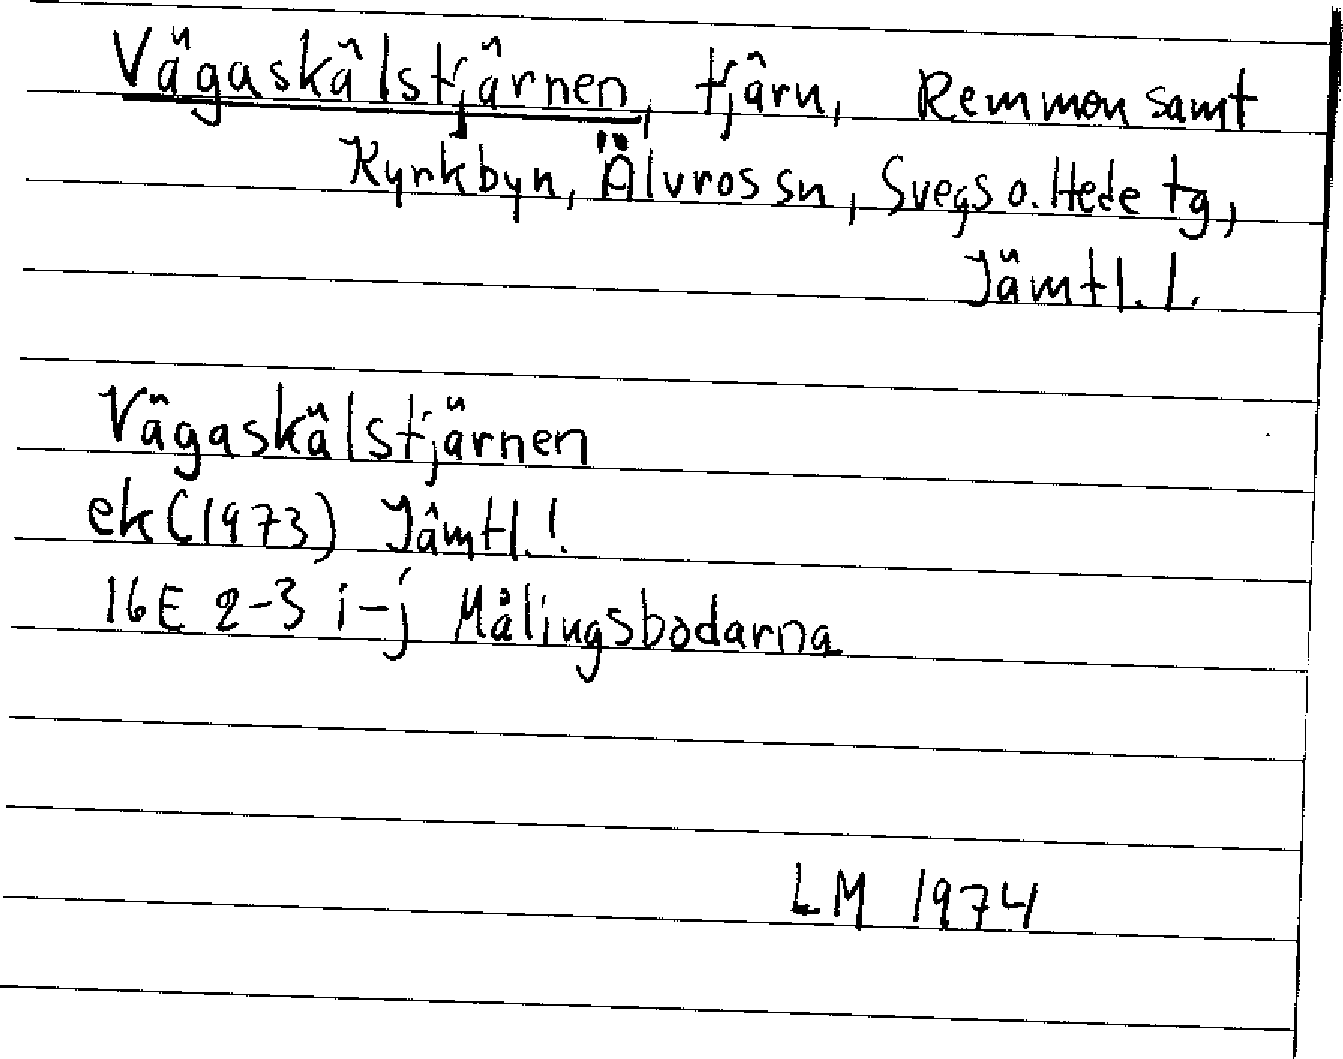 Vägaskälstjärnen, tjärn, Remmon samt
Kyrkbyn, Älvros sn, Svegs o. Hede tg,
Jämtl. l.
Vägaskälstjärnen
ek (1973) Jämtl. l.
16E 2-3 i-j Målingsbodarna
LM 1974